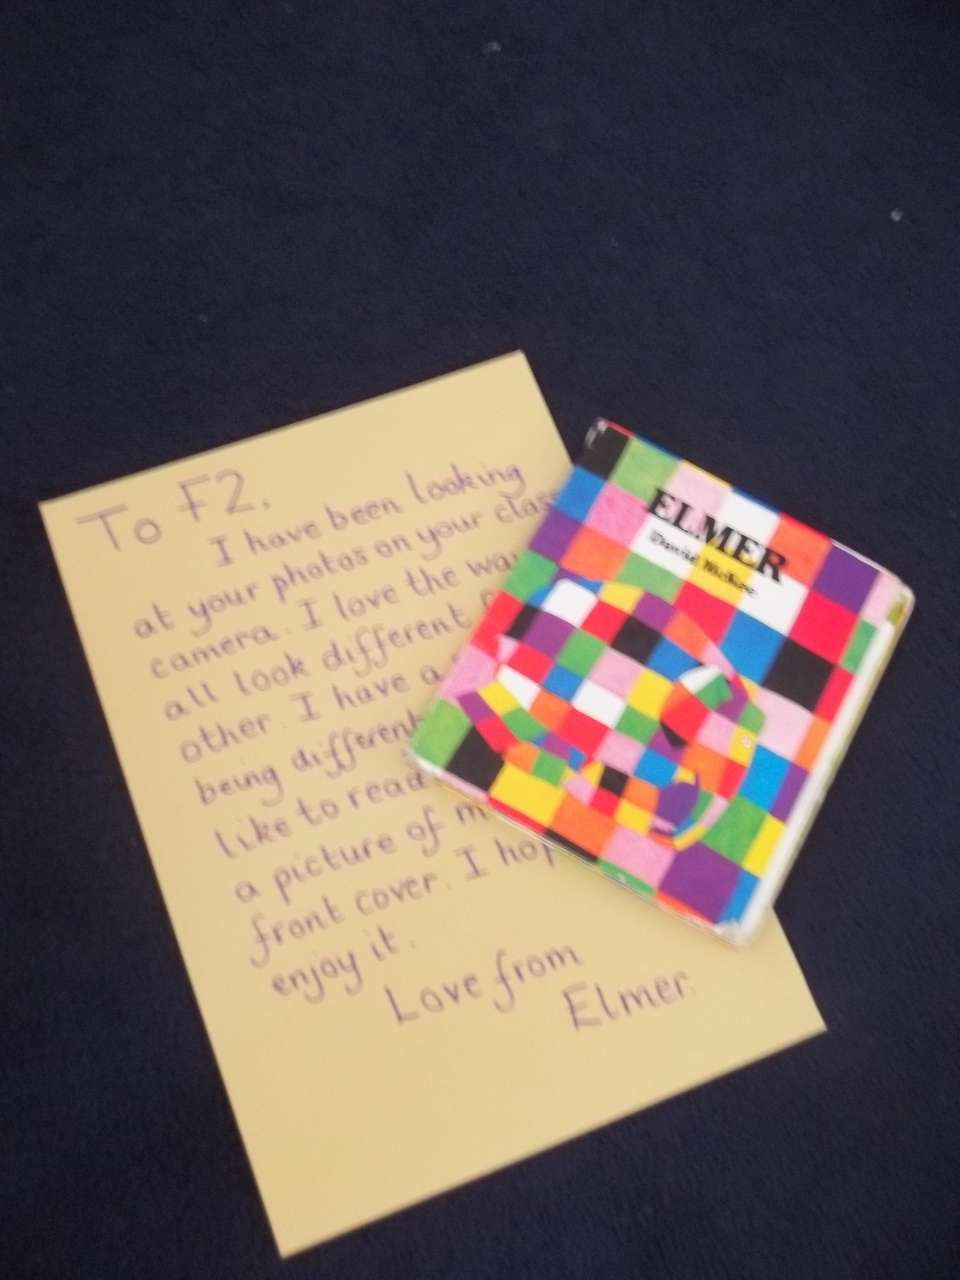 To F2.
I have been looking
at your photos on your class
camera. I love the way
all look different
other. I have a
being different
like to read
a picture of m
front cover. I hop
enjoy it.
Love from
Elmer.
ELMER
David McKee